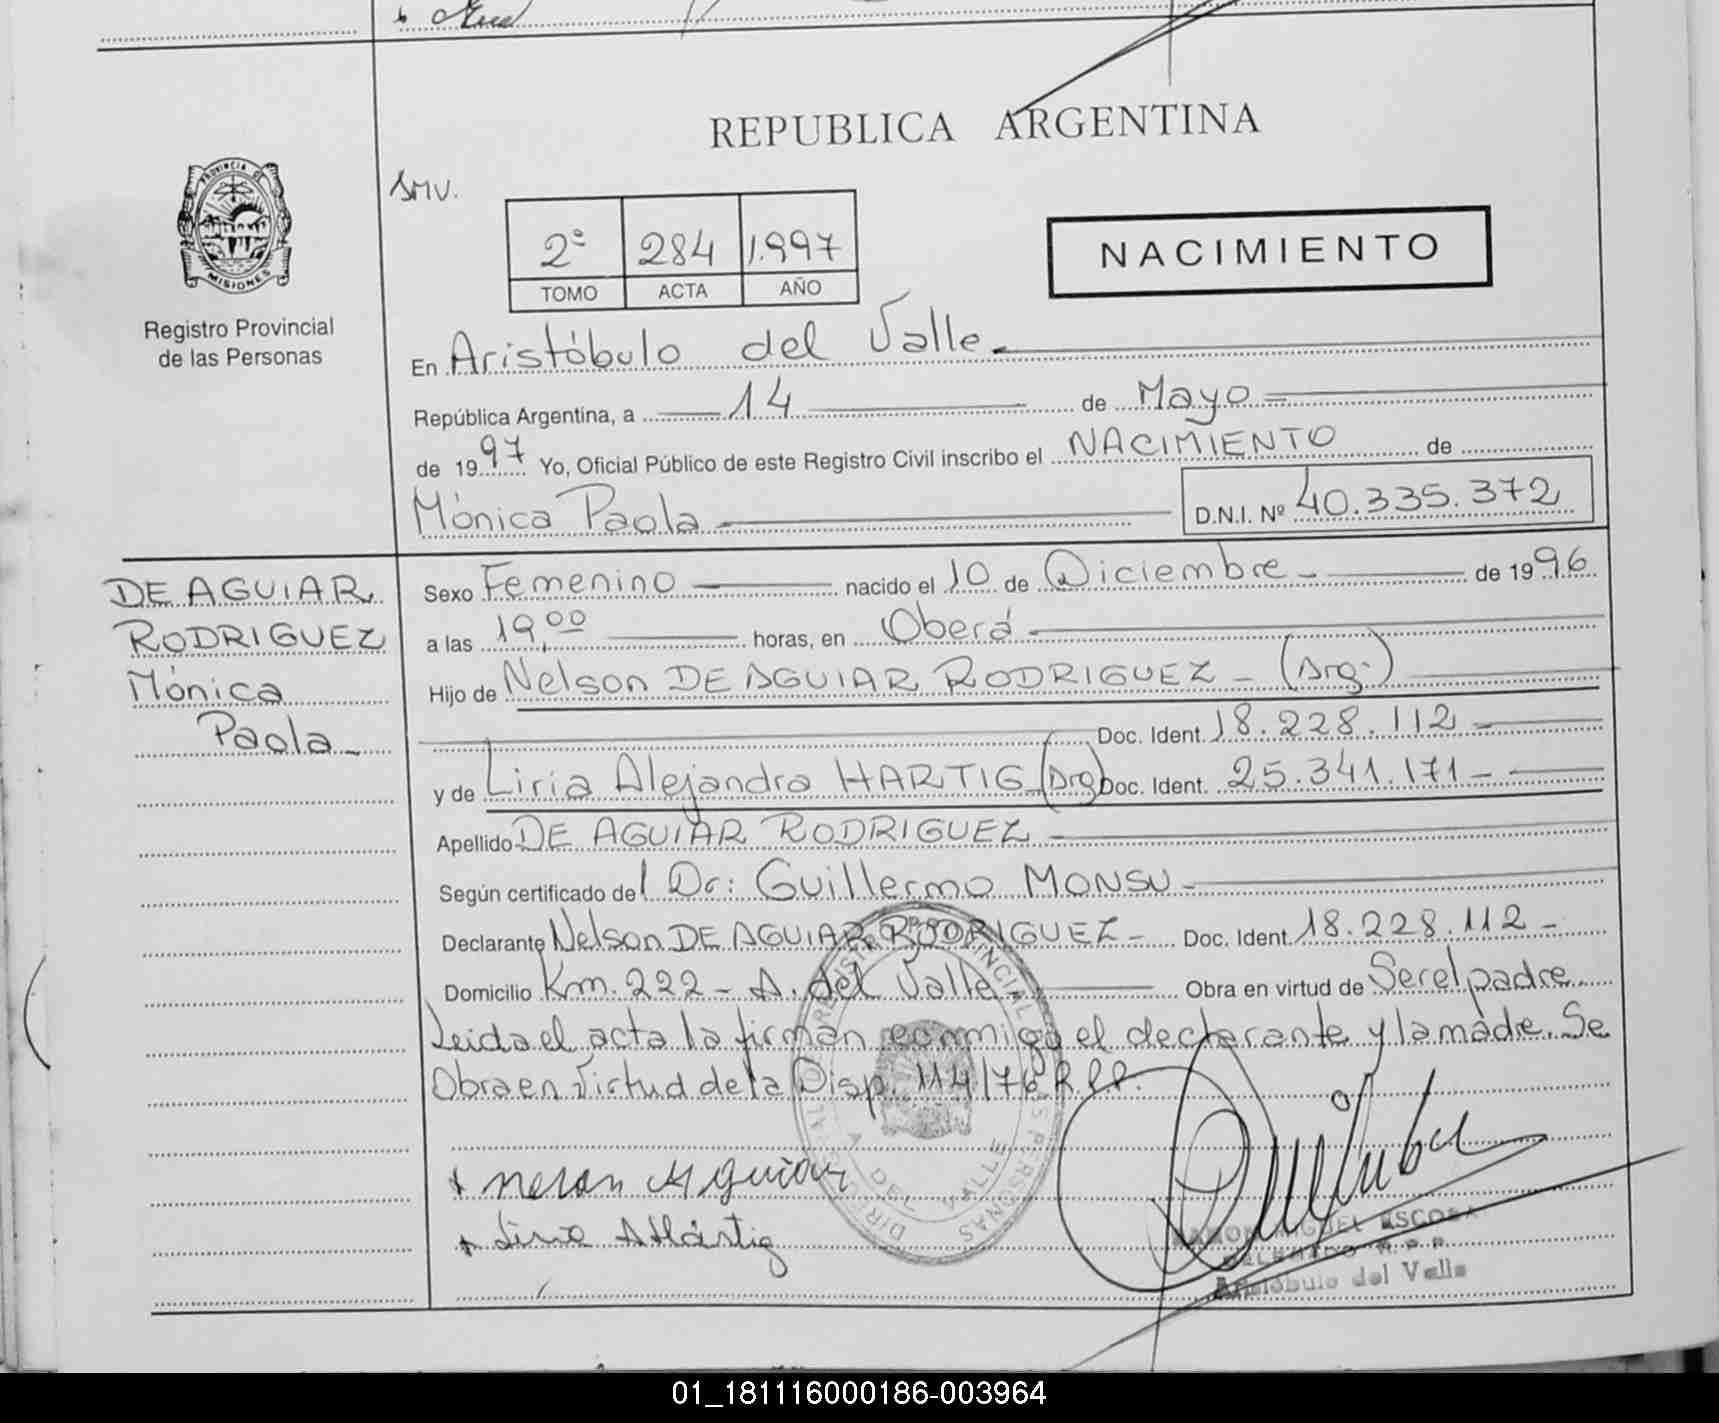 REPUBLICA ARGENTINA
PROVINCIA DE
MISIONES
Registro Provincial
de las Personas
SMV.
2º 284 1.997
TOMO ACTA AÑO
NACIMIENTO
En Aristóbulo del Valle.
República Argentina, a 14 de Mayo
de 1997 Yo, Oficial Público de este Registro Civil inscribo el NACIMIENTO de
Mónica Paola D.N.I. Nº 40.335.372
DE AGUIAR
RODRIGUEZ
Mónica
Paola
Sexo Femenino nacido el 10 de Diciembre de 1996
a las 19,00 horas, en Oberá
Hijo de Nelson DE AGUIAR RODRIGUEZ - (Arg.)
Doc. Ident. 18.228.112
y de Liria Alejandra HARTIG (Arg) Doc. Ident. 25.341.171
Apellido DE AGUIAR RODRIGUEZ
Según certificado del Dr: Guillermo MONSU
Declarante Nelson DE AGUIAR RODRIGUEZ - Doc. Ident. 18.228.112 -
Domicilio Km. 222 - A. del Valle Obra en virtud de Ser el padre
Leida el acta la firman conmigo el declarante y la madre. Se
Obra en Virtud de la Disp. 114/76 R.P.P.
A. DEL VALLE
RAMON MIGUEL ESCOBAR
DELEGADO R.P.P.
Aristóbulo del Valle
01_181116000186-003964